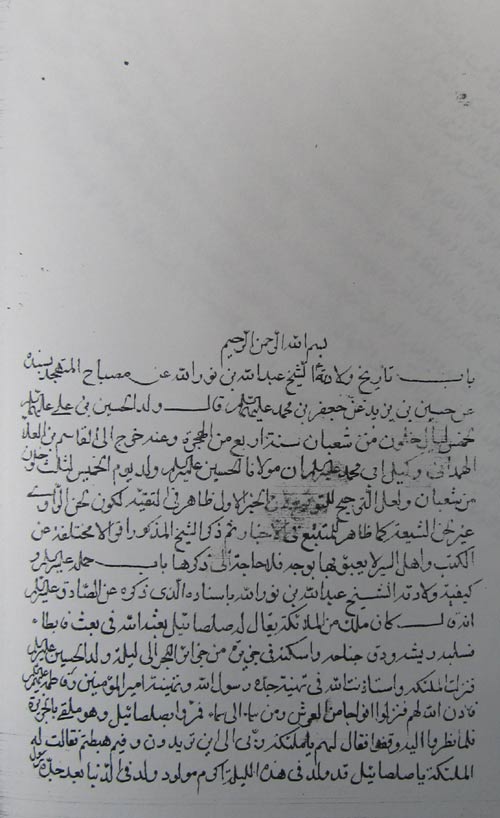 بسم الله الرحمن الرحيم
باب تاريخ ولادته الشيخ عبدالله بن نور الله عن مصباح المتهجد بسنده
عن حسين بن زيد عن جعفر بن محمد عليهما السلم قال ولد الحسين بن علي عليهما السلم
لخمس ليال خلون من شعبان سنة اربع من الهجرة وعنه خرج الى القاسم بن العلا
الهمداني وكيل ابي محمد عليه السلم ان مولانا الحسين عليه السلم ولد يوم الخميس لثلث خلون
من شعبان ولعل الترجيح للتوقيع الخبر الاول ظاهر في التقيه لكون الراوي
عن الشيعة كما ظاهر للمتتبع في الاخبار ثم ذكر الشيخ المذكور اقوالا مختلفة عن
الكتب واهل السير لا يعبؤ بها بوجه فلا حاجة الى ذكرها باب حمله عليه السلم و
كيفية ولادته الشيخ عبدالله بن نور الله باسناده الذي ذكره عن الصادق عليه السلم
انه قال كان ملك من الملائكة يقال له صلصائيل بعثه الله في بعث فابطاء
فسلبه ريشه ودق جناحه واسكنه في جزيرة من جزائر البحر الى ليلة ولد الحسين عليه السلم
فنزلت الملئكة واستاذنت الله في تهنية جده رسول الله وتهنية امير المؤمنين وفاطمة عليهم السلم
فاذن الله لهم فنزلوا افواجا من العرش ومن سماء الى سماء فمروا بصلصائيل وهو ملقى بالجزيرة
فلما نظروا اليه وقفوا فقال لهم يا ملئكة ربي الى اين تريدون وفيم هبطتم فقالت له
الملئكة يا صلصائيل قد ولد في هذه الليلة اكرم مولود ولد في الدنيا بعد جده رسول